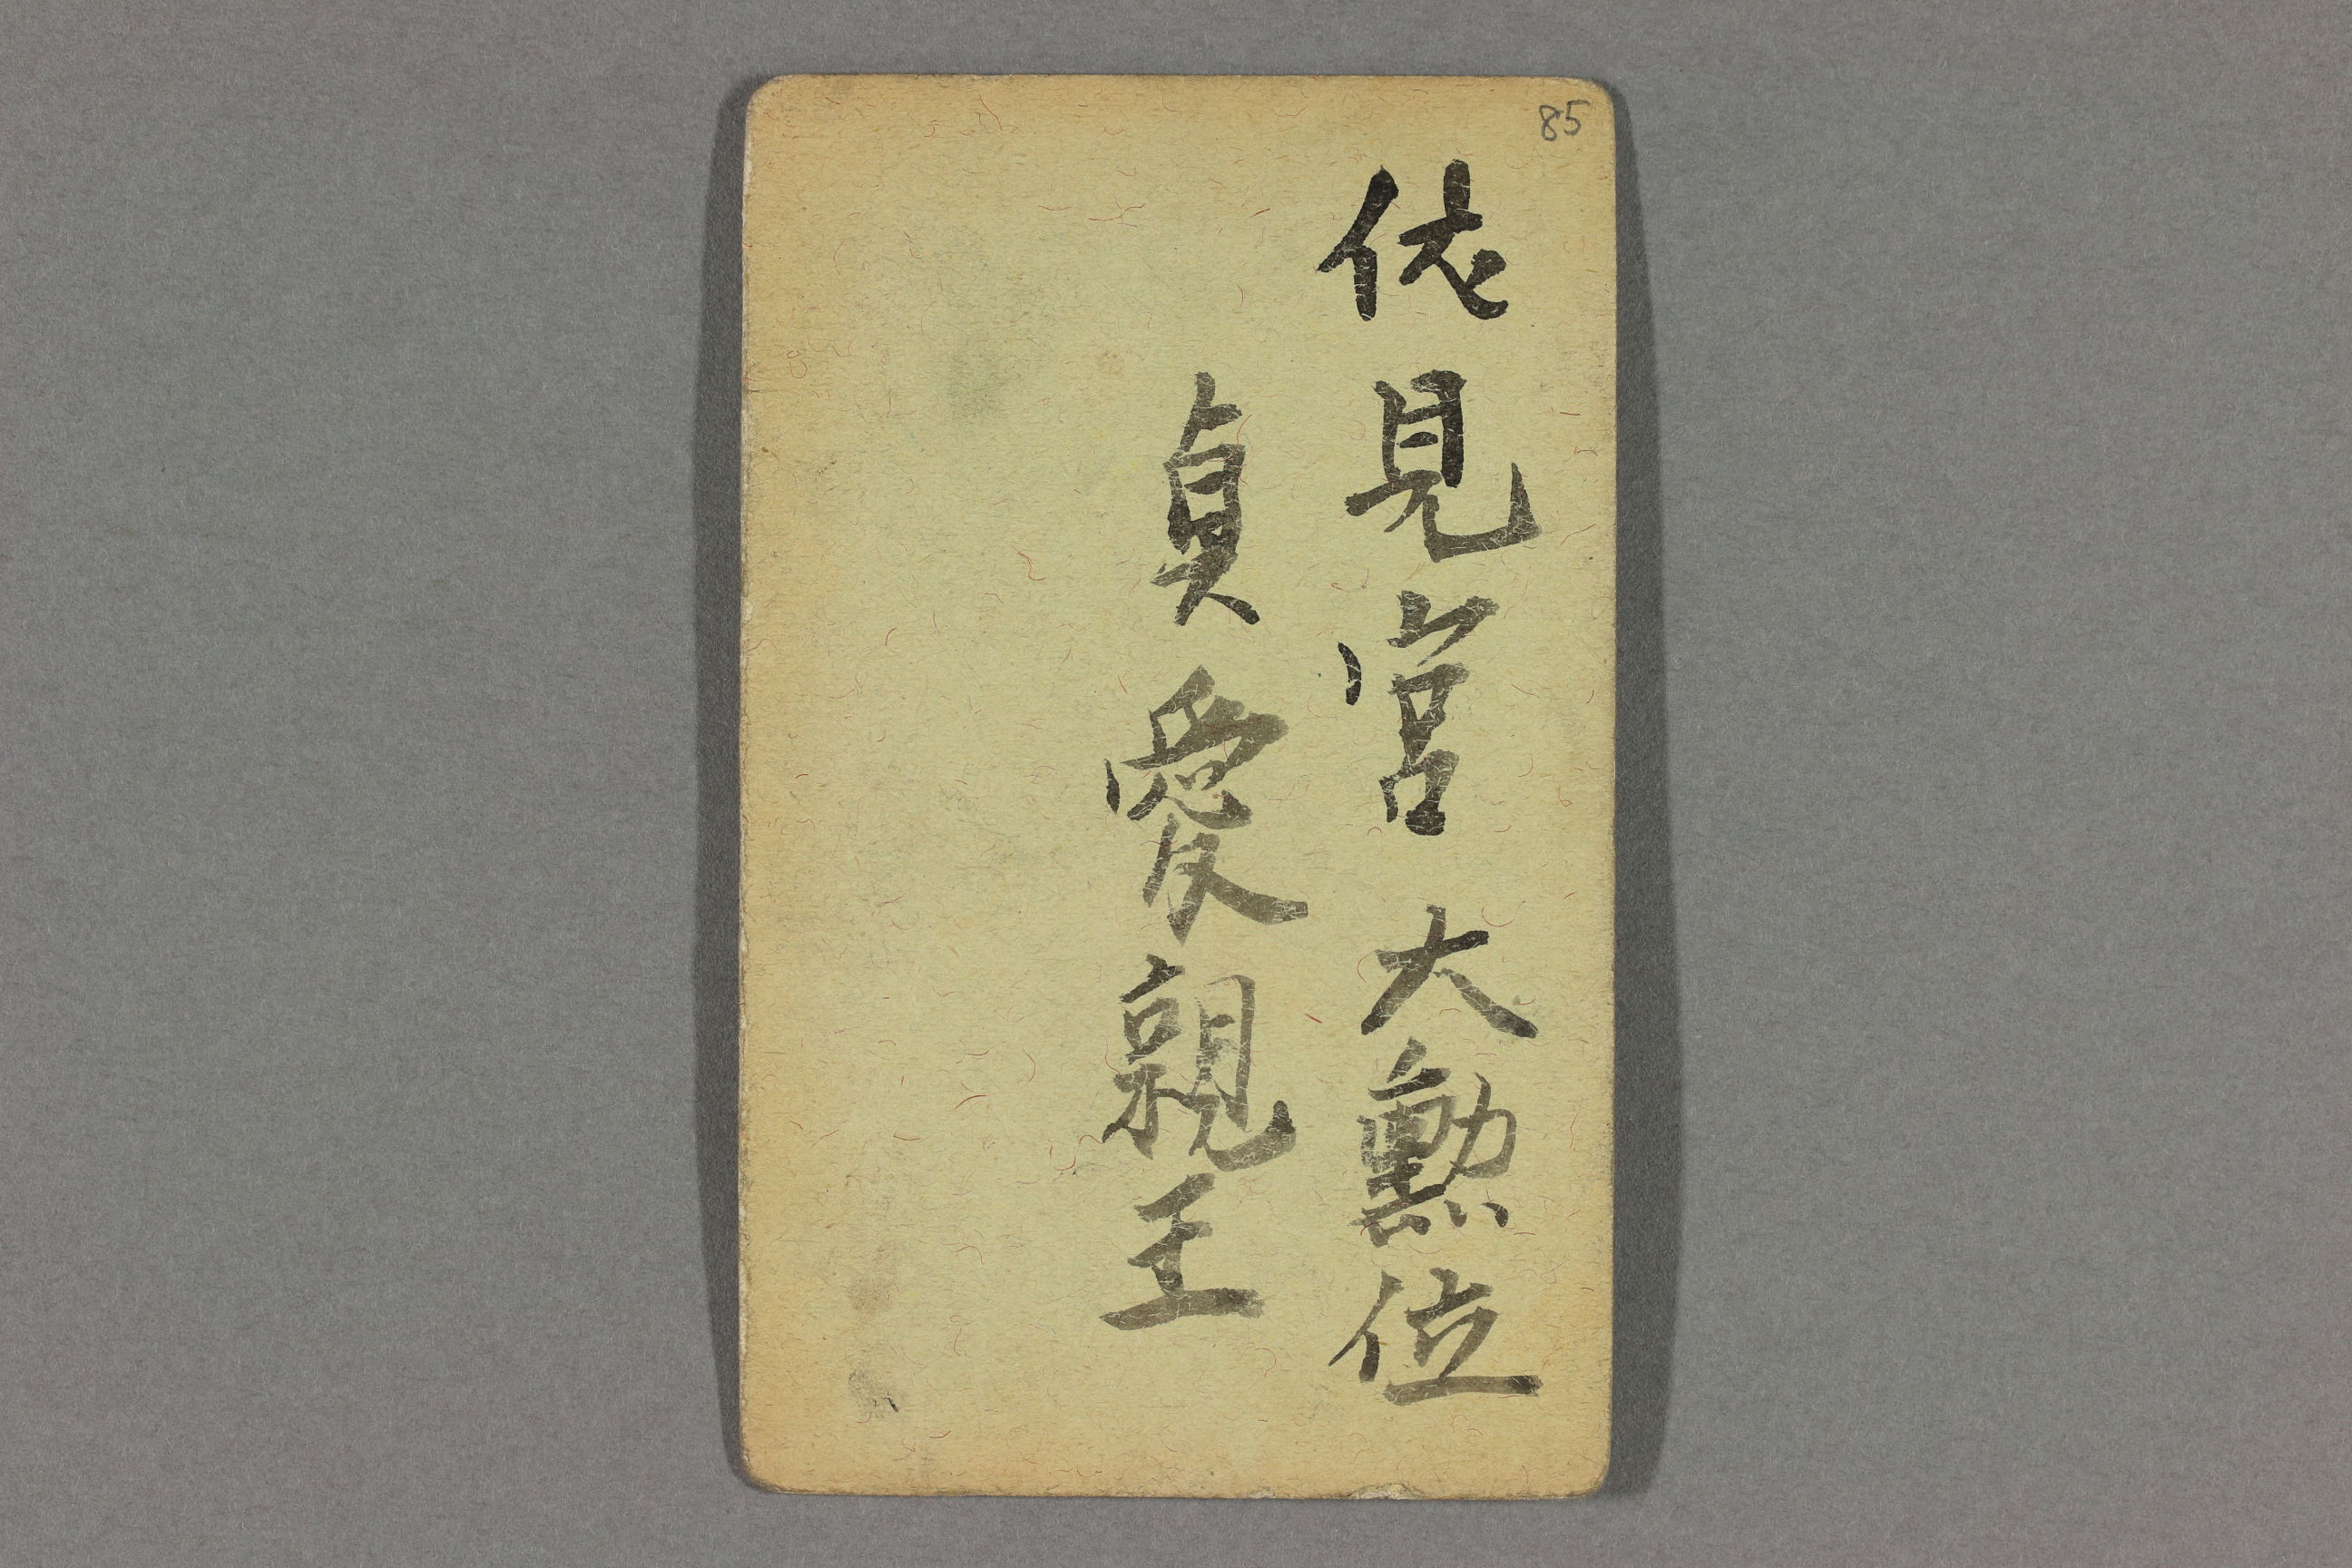 85
伏見宮大勲位
貞愛親王